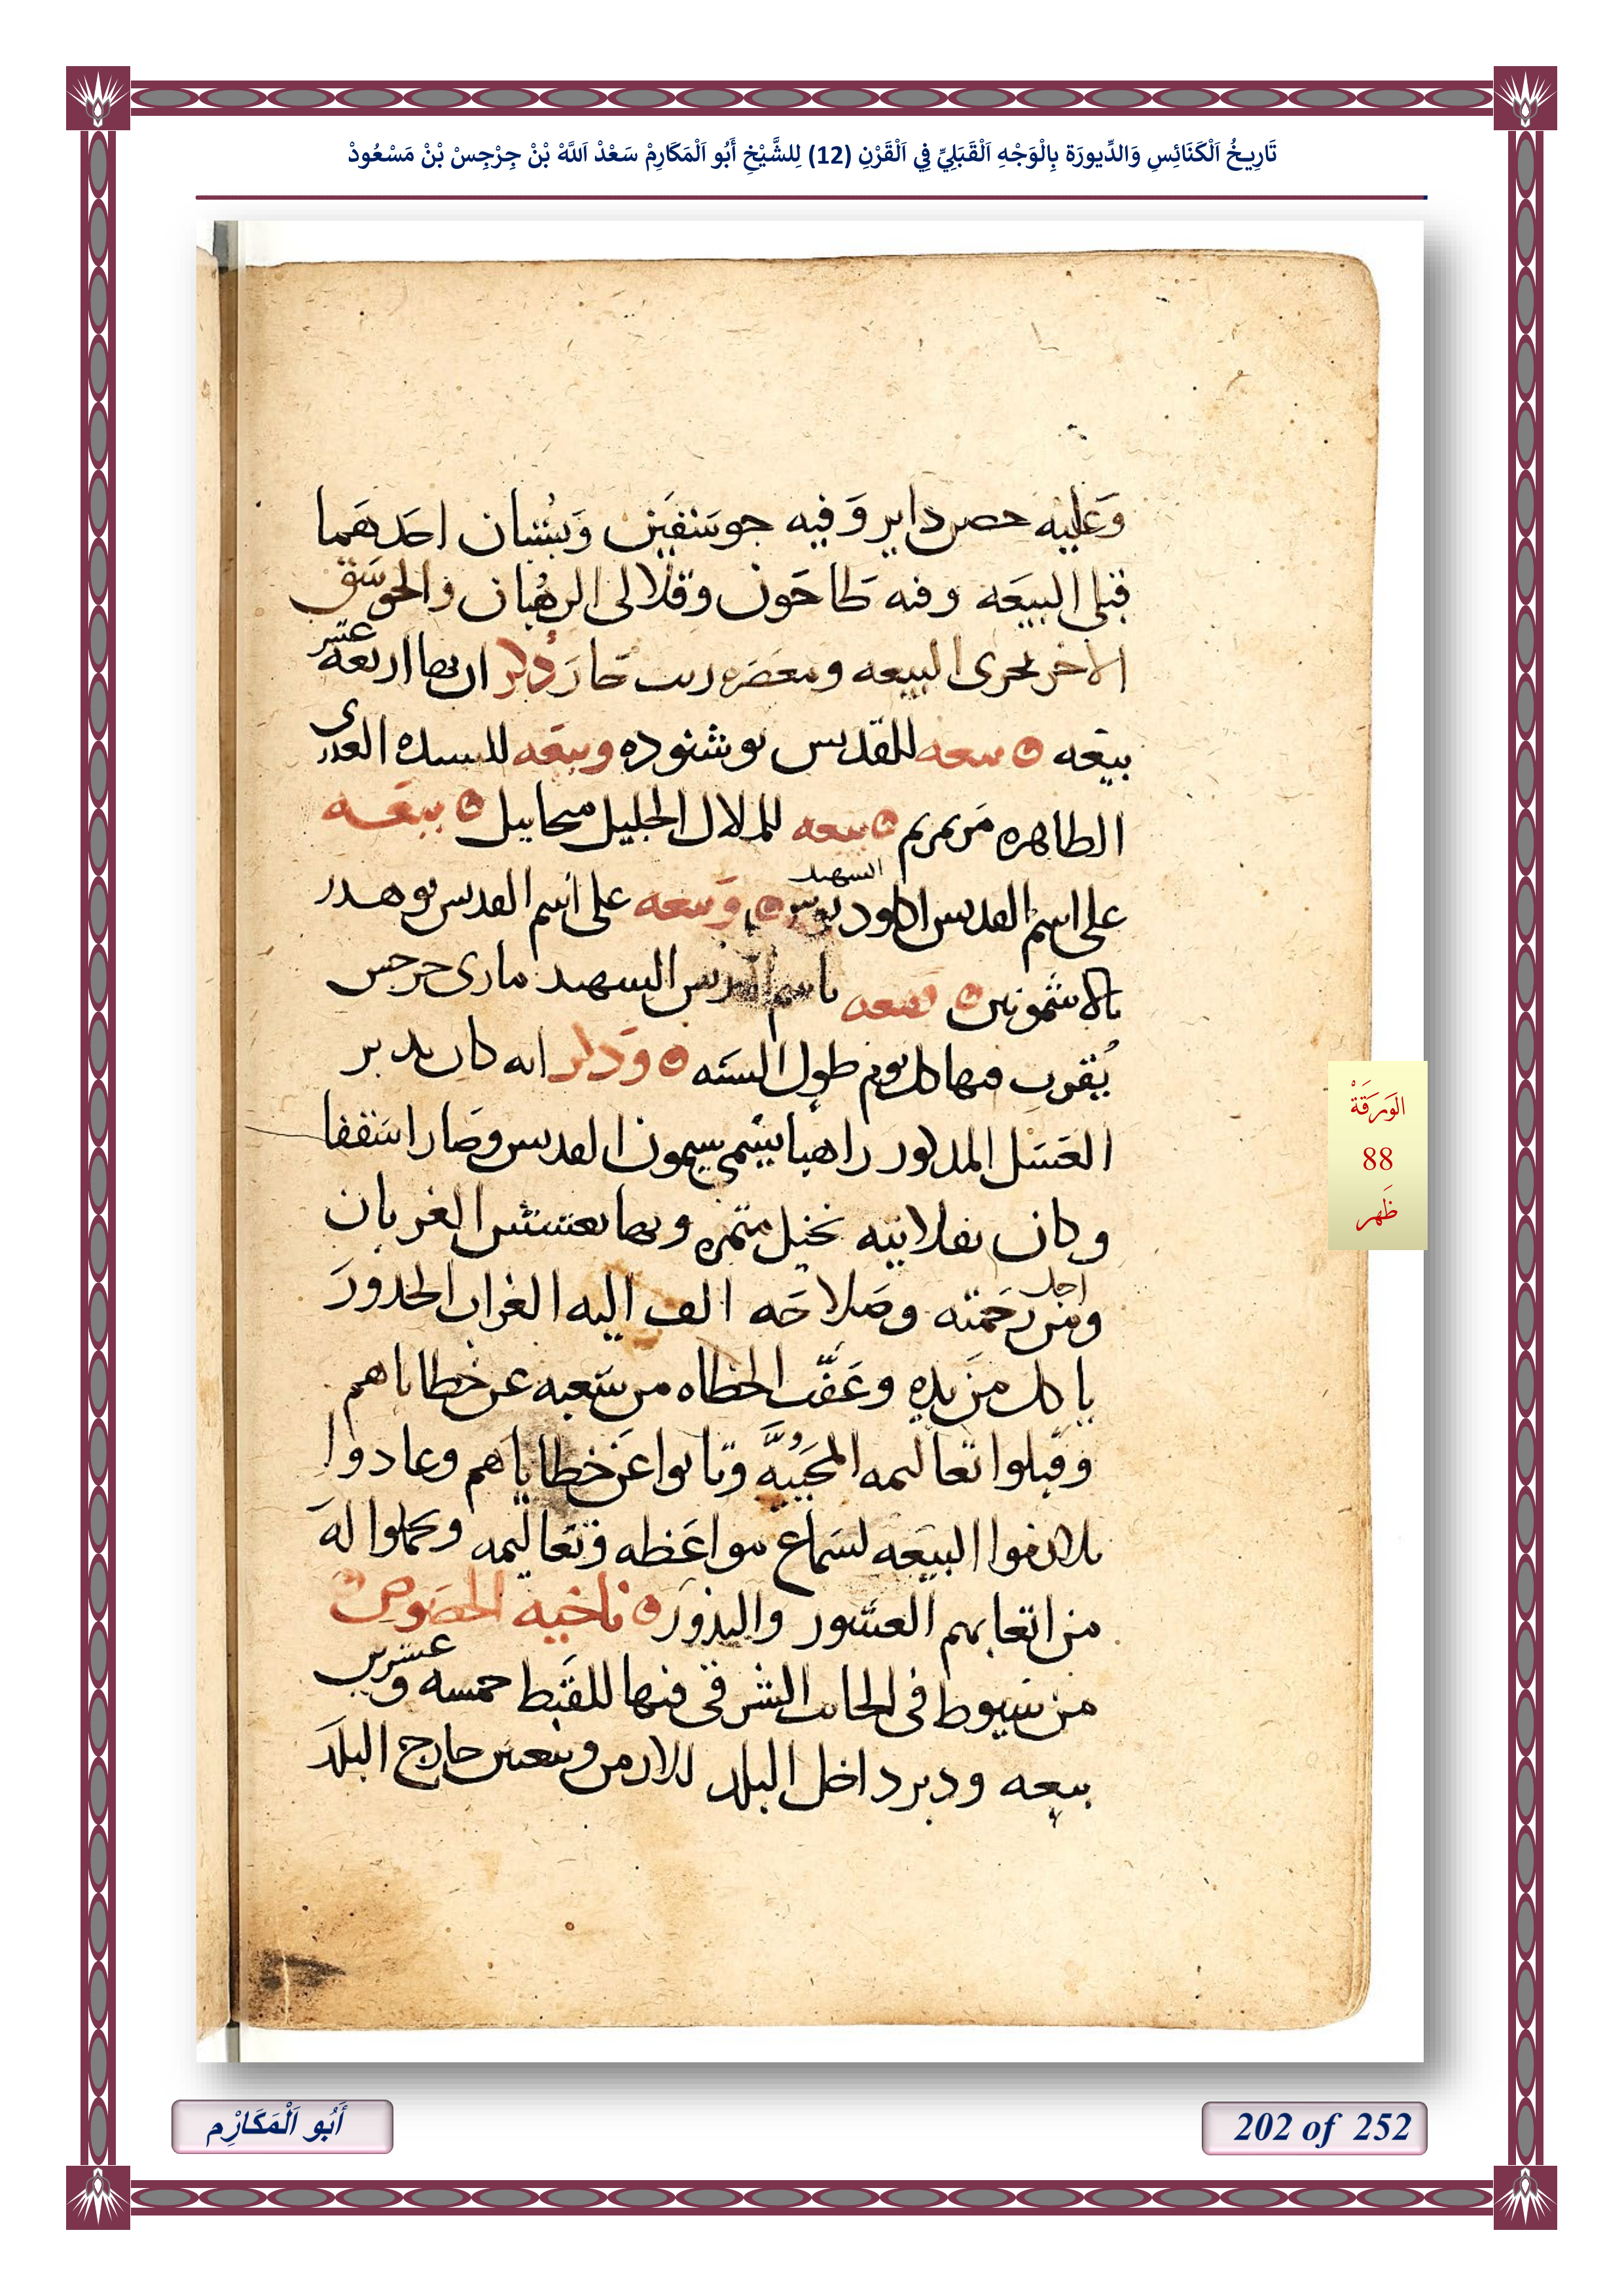 تَارِيخُ اَلْكَنَائِسِ وَالدِّيورَة بِالْوَجْهِ اَلْقَبَلِيِّ فِي اَلْقَرْنِ (12) لِلشَّيْخِ أَبُو اَلْمَكَارِمْ سَعْدْ اَللَّهْ بْنْ جِرْجِسْ بْنْ مَسْعُودْ
وَعَليه حصن داير وَفيه جوسَنفَين وَببُستان احَدهَما
قبلى البيعَه وفيه طاحَون وقلالى الرهبان والجوسَق
الاخر بحرى البيعه ومعصَره زيت حار ذكر ان بها اربعة عشر
بيعَه بيعه للقديس بوشنوده وبيعَه للسيده العدرى
الطاهره مَرتمريم بيعه للملاك الجليل ميخاييل بيعَه
على اسم القديس اكلوديوس الشهيد وَبيعه على اسم القديس بوهدر
بالاشمونين بيعه باسم القديس الشهيد مارى جرجس
يُقرب فيها كل يوم طول السَنه وَذكر انه كان بدير
العَسَل المدكور راهبا يسَمى سيمون القديس وصَار اسَقفا
وكان بقلايته نخيل متمره وبها تعشش الغربان
ومن اجل رحَمته وصَلاحَه الف اليه الغراب الحدورَ
ياكل من يده وعَقَب الخطاه من شعبه عن خطاياهم
وَقبلوا تعاليمه المحَيَيه وتابوا عَن خطاياهم وعادوا
يلازموا البيعَه لسَماع مواعَظه وتعاليمه ويحملوا لهَ
من اتعابهم العشور والندور ناحيه الخصوص
من سيوط فى الجانب الشرقى فيها للقبَط خمسه وعشرين
بيعه ودير داخل البلد للارمن وبيعتين خارج البلد
الوَرَقَةْ
88
ظَهر
أَبُو اَلْمَكَارِْم
202 of 252